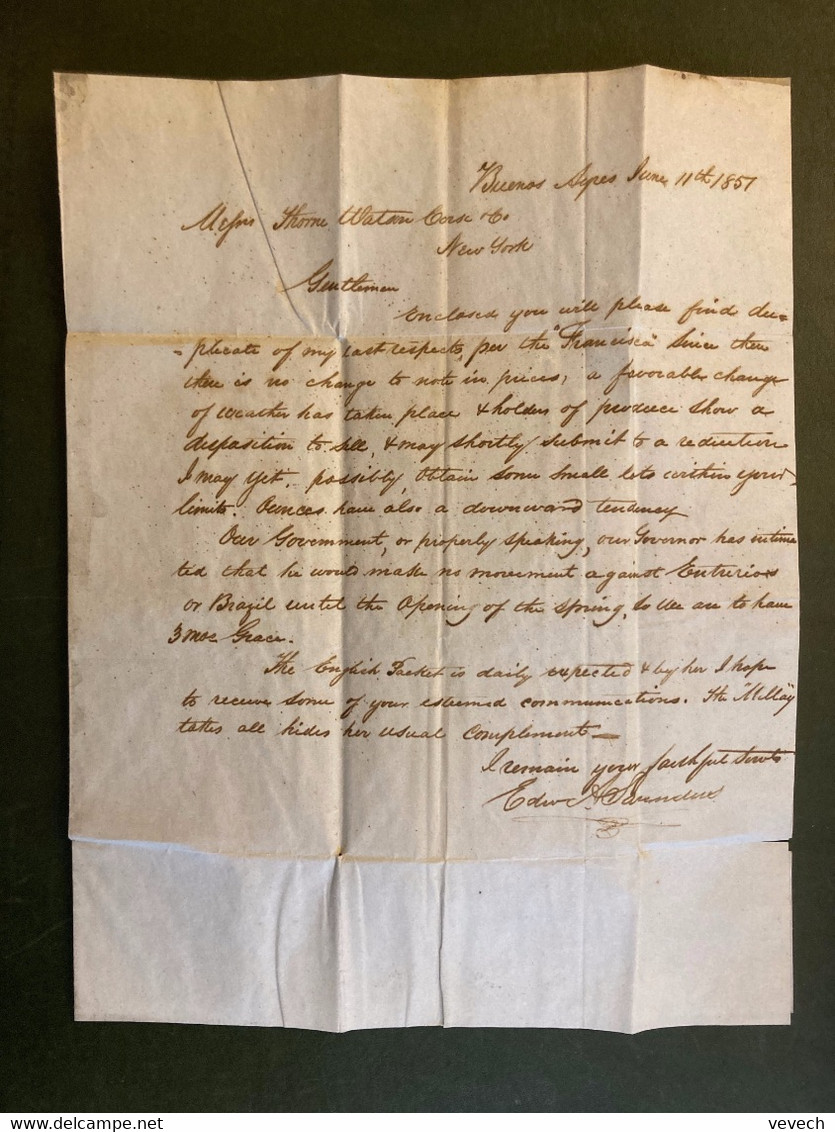 Buenos Ayres June 11th 1851
Messrs Thorne Watson Corse & Co
New York
Gentlemen
Enclosed you will please find du=
=plicate of my last respects, per the "Francisca" Since then
there is no change to note in prices, a favorable change
of weather has taken place & holders of produce show a
disposition to sell, & may shortly submit to a reduction
I may yet, possibly, obtain some small lots within your
limits. Ounces have also a downward tendency
Our Government, or properly speaking, our Governor has intima
ted that he would make no movement against Entrerios
or Brazil until the opening of the spring, so we are to have
3 mos Grace.
The English Packet is daily expected & by her I hope
to receive some of your esteemed communications. The
takes all hides her usual complement —
I remain your faithful Servt
Edw A Saunders
DELCAMPE.NET
vevech